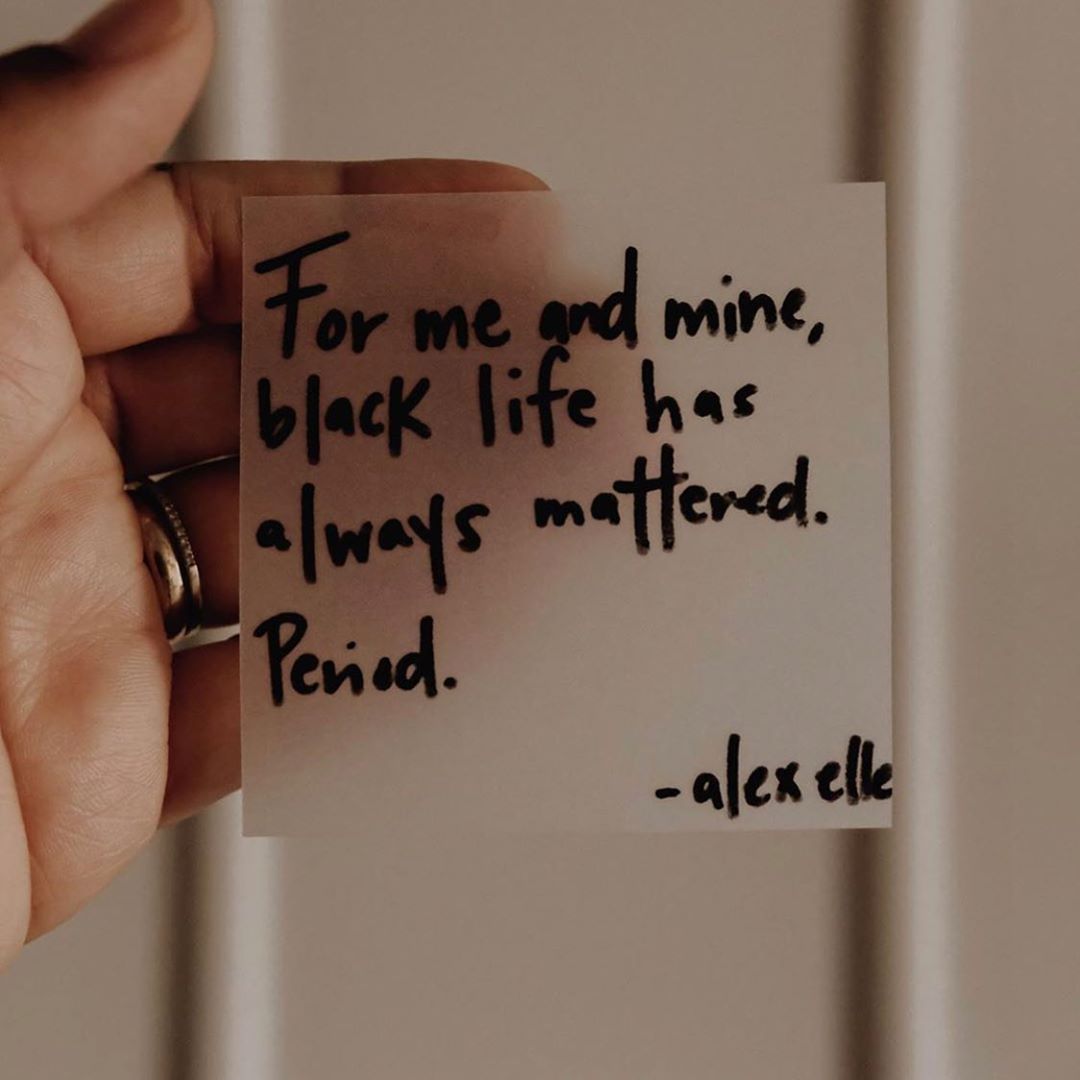 For me and mine,
black life has
always mattered.
Period.
-alex elle